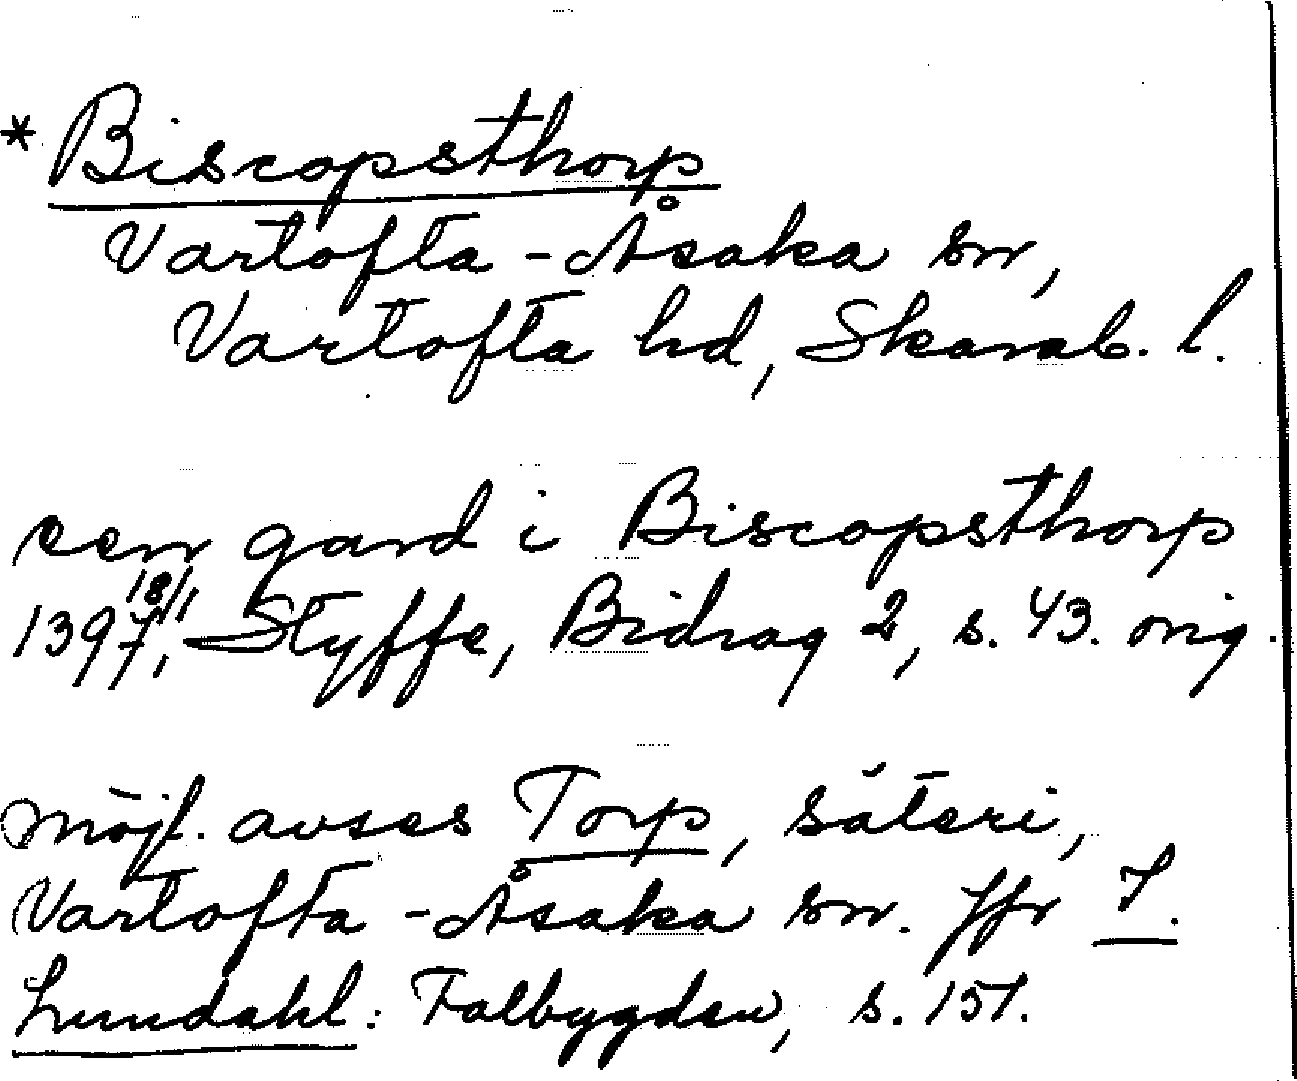 * Biscopsthorp
Vartofta-Åsaka sn,
Vartofta hd, Skarab. l.
een gard i Biscopsthorp
1397 18/11, Styffe, Bidrag 2, s. 43. orig.
möjl. avses Torp, säteri,
Vartofta-Åsaka sn. Jfr I.
Lundahl: Falbygden, s. 151.